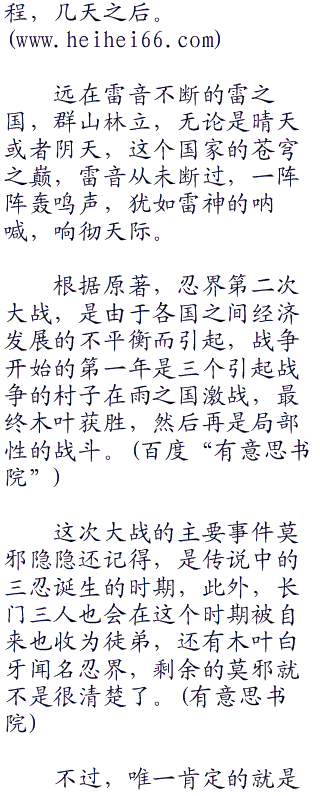 程，几天之后。
(www.heihei66.com)
远在雷音不断的雷之
国，群山林立，无论是晴天
或者阴天，这个国家的苍穹
之巅，雷音从未断过，一阵
阵轰鸣声，犹如雷神的呐
喊，响彻天际。
根据原著，忍界第二次
大战，是由于各国之间经济
发展的不平衡而引起，战争
开始的第一年是三个引起战
争的村子在雨之国激战，最
终木叶获胜，然后再是局部
性的战斗。(百度“有意思书
院”)
这次大战的主要事件莫
邪隐隐还记得，是传说中的
三忍诞生的时期，此外，长
门三人也会在这个时期被自
来也收为徒弟，还有木叶白
牙闻名忍界，剩余的莫邪就
不是很清楚了。(有意思书
院)
不过，唯一肯定的就是